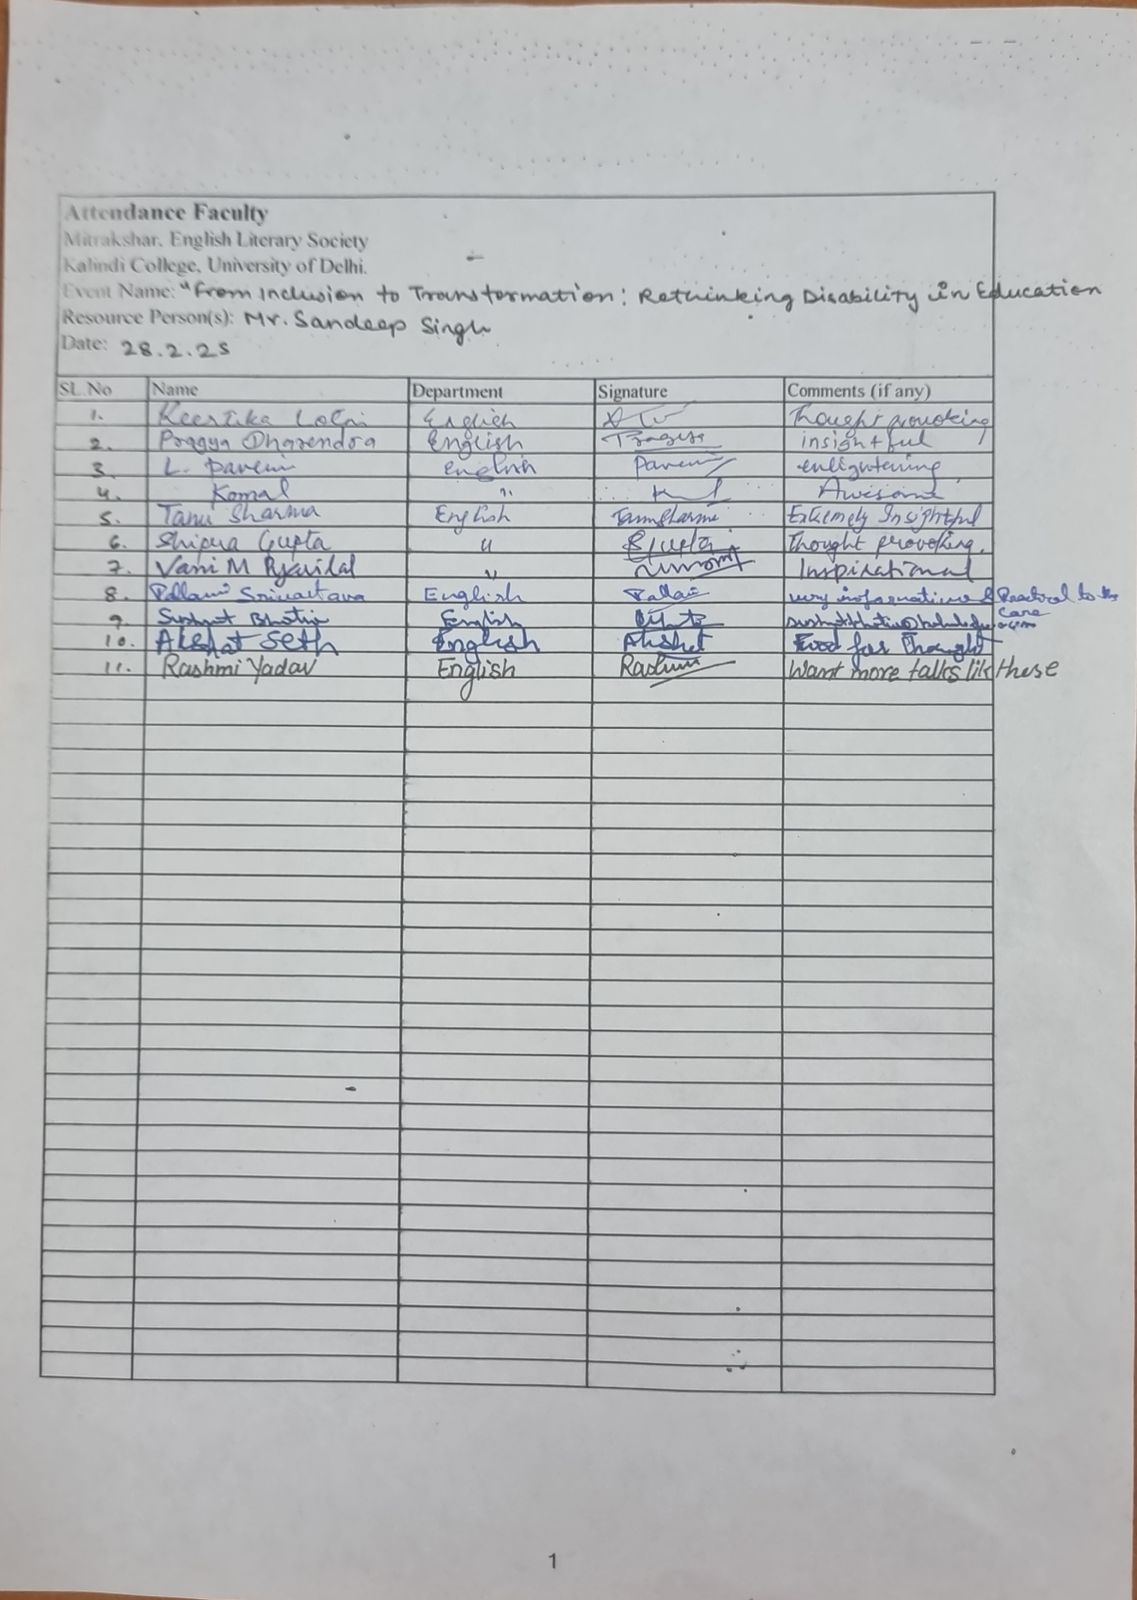 Attendance Faculty
Mitrakshar, English Literary Society
Kalindi College, University of Delhi.
Event Name: "From Inclusion to Transformation: Rethinking Disability in Education
Resource Person(s): Mr. Sandeep Singh
Date: 28.2.25
SL.No Name Department Signature Comments (if any)
1. Keertika English Thought provoking
2. Pragya Dharendra English Pragya insightful
3. L. Paveni English Paveni enlightening
4. Komal " Awesome
5. Tanu Sharma English Tanu Sharma Extremely Insightful
6. Shipra Gupta " SGupta Thought provoking.
7. Vani M " Inspirational
8. Pallavi Srivastava English Pallavi very informative & Practical to the
core
9. Bhatia English
10. Akshat Seth English Akshat Food for Thought
11. Rashmi Yadav English Rashmi Want more talks lik these
1